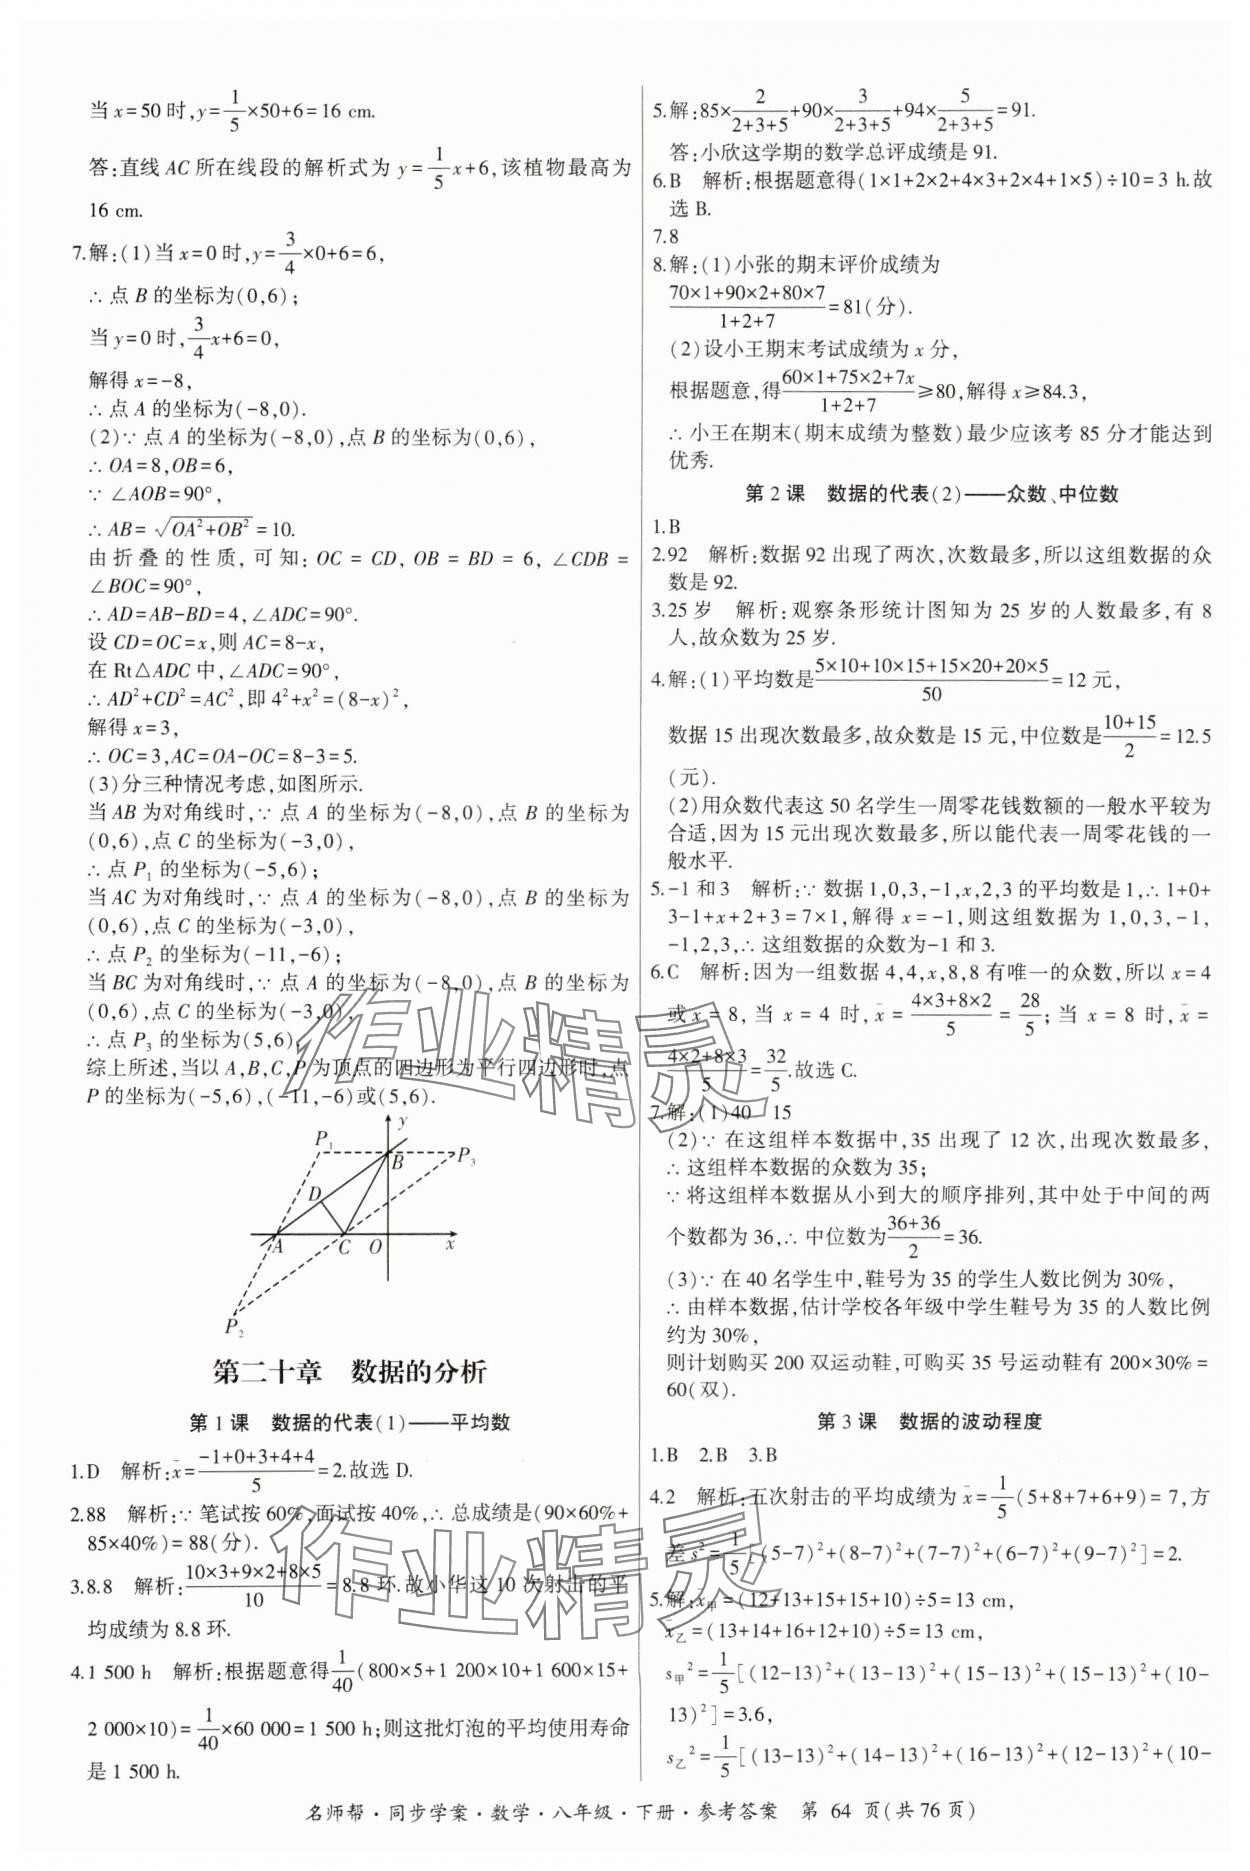 当 x=50 时,y=1/5×50+6=16 cm.
答:直线 AC 所在线段的解析式为 y=1/5x+6,该植物最高为
16 cm.
7.解:(1)当 x=0 时,y=3/4×0+6=6,
∴点 B 的坐标为(0,6);
当 y=0 时,3/4x+6=0,
解得 x=-8,
∴点 A 的坐标为(-8,0).
(2)∵点 A 的坐标为(-8,0),点 B 的坐标为(0,6),
∴OA=8,OB=6,
∵∠AOB=90°,
∴AB=√(OA²+OB²)=10.
由折叠的性质,可知:OC=CD,OB=BD=6,∠CDB=
∠BOC=90°,
∴AD=AB-BD=4,∠ADC=90°.
设 CD=OC=x,则 AC=8-x,
在 Rt△ADC 中,∠ADC=90°,
∴AD²+CD²=AC²,即 4²+x²=(8-x)²,
解得 x=3,
∴OC=3,AC=OA-OC=8-3=5.
(3)分三种情况考虑,如图所示.
当 AB 为对角线时,∵点 A 的坐标为(-8,0),点 B 的坐标为
(0,6),点 C 的坐标为(-3,0),
∴点 P₁ 的坐标为(-5,6);
当 AC 为对角线时,∵点 A 的坐标为(-8,0),点 B 的坐标为
(0,6),点 C 的坐标为(-3,0),
∴点 P₂ 的坐标为(-11,-6);
当 BC 为对角线时,∵点 A 的坐标为(-8,0),点 B 的坐标为
(0,6),点 C 的坐标为(-3,0),
∴点 P₃ 的坐标为(5,6),
综上所述,当以 A,B,C,P 为顶点的四边形为平行四边形时,点
P 的坐标为(-5,6),(-11,-6)或(5,6).
y
P₁
B
P₃
D
A
C
O
x
P₂
第二十章 数据的分析
第 1 课 数据的代表(1)——平均数
1.D 解析:x̄=(-1+0+3+4+4)/5=2.故选 D.
2.88 解析:∵笔试按 60%,面试按 40%,∴总成绩是(90×60%+
85×40%)=88(分).
3.8.8 解析:(10×3+9×2+8×5)/10=8.8 环.故小华这 10 次射击的平
均成绩为 8.8 环.
4.1 500 h 解析:根据题意得1/40(800×5+1 200×10+1 600×15+
2 000×10)=1/40×60 000=1 500 h;则这批灯泡的平均使用寿命
是 1 500 h.
5.解:85×2/(2+3+5)+90×3/(2+3+5)+94×5/(2+3+5)=91.
答:小欣这学期的数学总评成绩是 91.
6.B 解析:根据题意得(1×1+2×2+4×3+2×4+1×5)÷10=3 h.故
选 B.
7.8
8.解:(1)小张的期末评价成绩为
(70×1+90×2+80×7)/(1+2+7)=81(分).
(2)设小王期末考试成绩为 x 分,
根据题意,得(60×1+75×2+7x)/(1+2+7)≥80,解得 x≥84.3,
∴小王在期末(期末成绩为整数)最少应该考 85 分才能达到
优秀.
第 2 课 数据的代表(2)——众数、中位数
1.B
2.92 解析:数据 92 出现了两次,次数最多,所以这组数据的众
数是 92.
3.25 岁 解析:观察条形统计图知为 25 岁的人数最多,有 8
人,故众数为 25 岁.
4.解:(1)平均数是(5×10+10×15+15×20+20×5)/50=12 元,
数据 15 出现次数最多,故众数是 15 元,中位数是(10+15)/2=12.5
(元).
(2)用众数代表这 50 名学生一周零花钱数额的一般水平较为
合适,因为 15 元出现次数最多,所以能代表一周零花钱的一
般水平.
5.-1 和 3 解析:∵数据 1,0,3,-1,x,2,3 的平均数是 1,∴1+0+
3-1+x+2+3=7×1,解得 x=-1,则这组数据为 1,0,3,-1,
-1,2,3,∴这组数据的众数为-1 和 3.
6.C 解析:因为一组数据 4,4,x,8,8 有唯一的众数,所以 x=4
或 x=8,当 x=4 时,x̄=(4×3+8×2)/5=28/5;当 x=8 时,x̄=
(4×2+8×3)/5=32/5.故选 C.
7.解:(1)40 15
(2)∵在这组样本数据中,35 出现了 12 次,出现次数最多,
∴这组样本数据的众数为 35;
∵将这组样本数据从小到大的顺序排列,其中处于中间的两
个数都为 36,∴中位数为(36+36)/2=36.
(3)∵在 40 名学生中,鞋号为 35 的学生人数比例为 30%,
∴由样本数据,估计学校各年级中学生鞋号为 35 的人数比例
约为 30%,
则计划购买 200 双运动鞋,可购买 35 号运动鞋有 200×30%=
60(双).
第 3 课 数据的波动程度
1.B 2.B 3.B
4.2 解析:五次射击的平均成绩为 x̄=1/5(5+8+7+6+9)=7,方
差 s²=1/5[(5-7)²+(8-7)²+(7-7)²+(6-7)²+(9-7)²]=2.
5.解:x̄甲=(12+13+15+15+10)÷5=13 cm,
x̄乙=(13+14+16+12+10)÷5=13 cm,
s甲²=1/5[(12-13)²+(13-13)²+(15-13)²+(15-13)²+(10-
13)²]=3.6,
s乙²=1/5[(13-13)²+(14-13)²+(16-13)²+(12-13)²+(10-
名师帮·同步学案·数学·八年级·下册·参考答案 第 64 页(共 76 页)
作业精灵
作业精灵